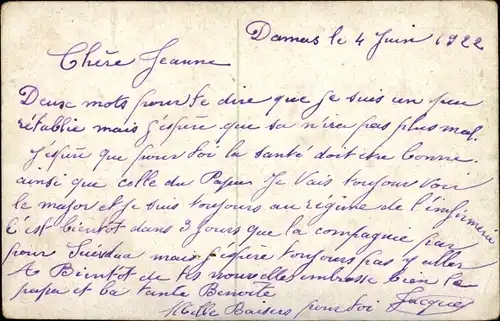 Damas le 4 Juin 1922
Chère Jeanne
Deux mots pour te dire que je suis un peu
rétablie mais j'espère que sa n'ira pas plus mal.
j'espère que pour toi la santé doit être bonne
ainsi que celle du Papa Je vais toujour voir
le major et je suis toujours au régime de l'infirmerie
C'est bientôt dans 3 jours que la compagnie par
pour Suédaa mais j'espère toujours pas y aller
A Bientôt de tes nouvelle embrosse bien le
papa et la tante Benoite
Mille Baisers pour toi Jacques